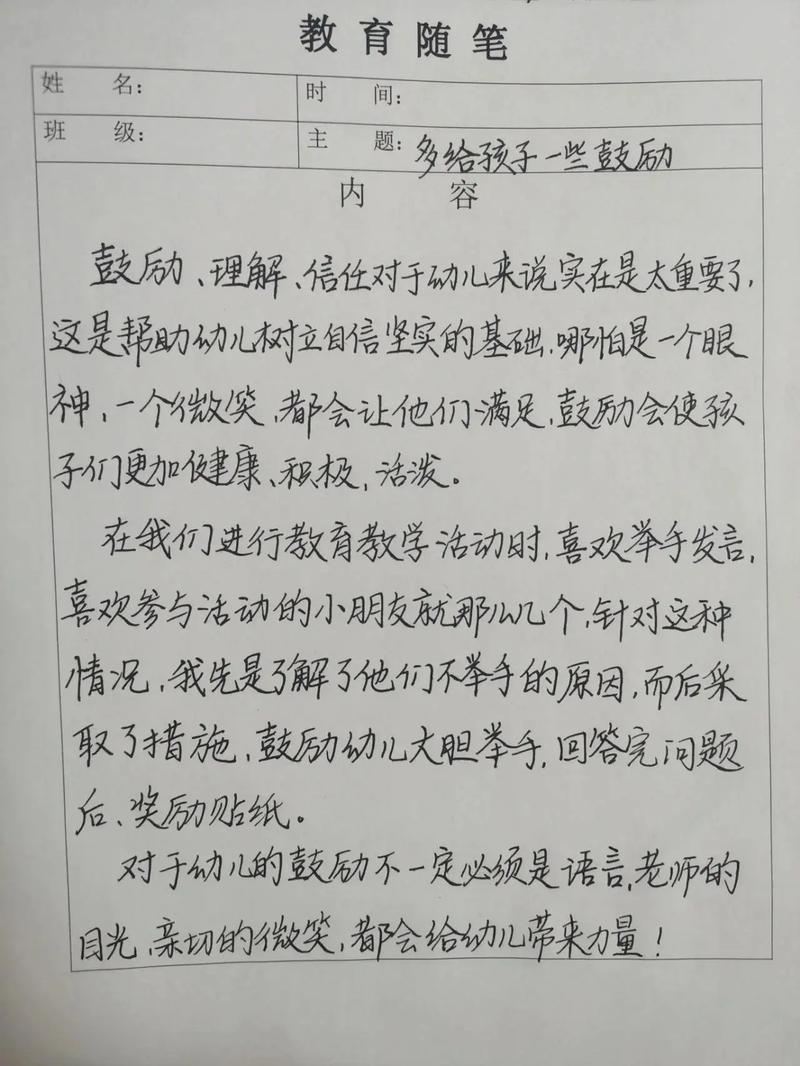 教育随笔
姓 名: 时 间:
班 级: 主 题: 多给孩子一些鼓励
内 容
鼓励、理解、信任对于幼儿来说实在是太重要了,
这是帮助幼儿树立自信坚实的基础,哪怕是一个眼
神,一个微笑,都会让他们满足,鼓励会使孩
子们更加健康、积极,活泼。
在我们进行教育教学活动时,喜欢举手发言,
喜欢参与活动的小朋友就那么几个,针对这种
情况,我先是了解了他们不举手的原因,而后采
取了措施,鼓励幼儿大胆举手,回答完问题
后、奖励贴纸。
对于幼儿的鼓励不一定必须是语言,老师的
目光,亲切的微笑,都会给幼儿带来力量!